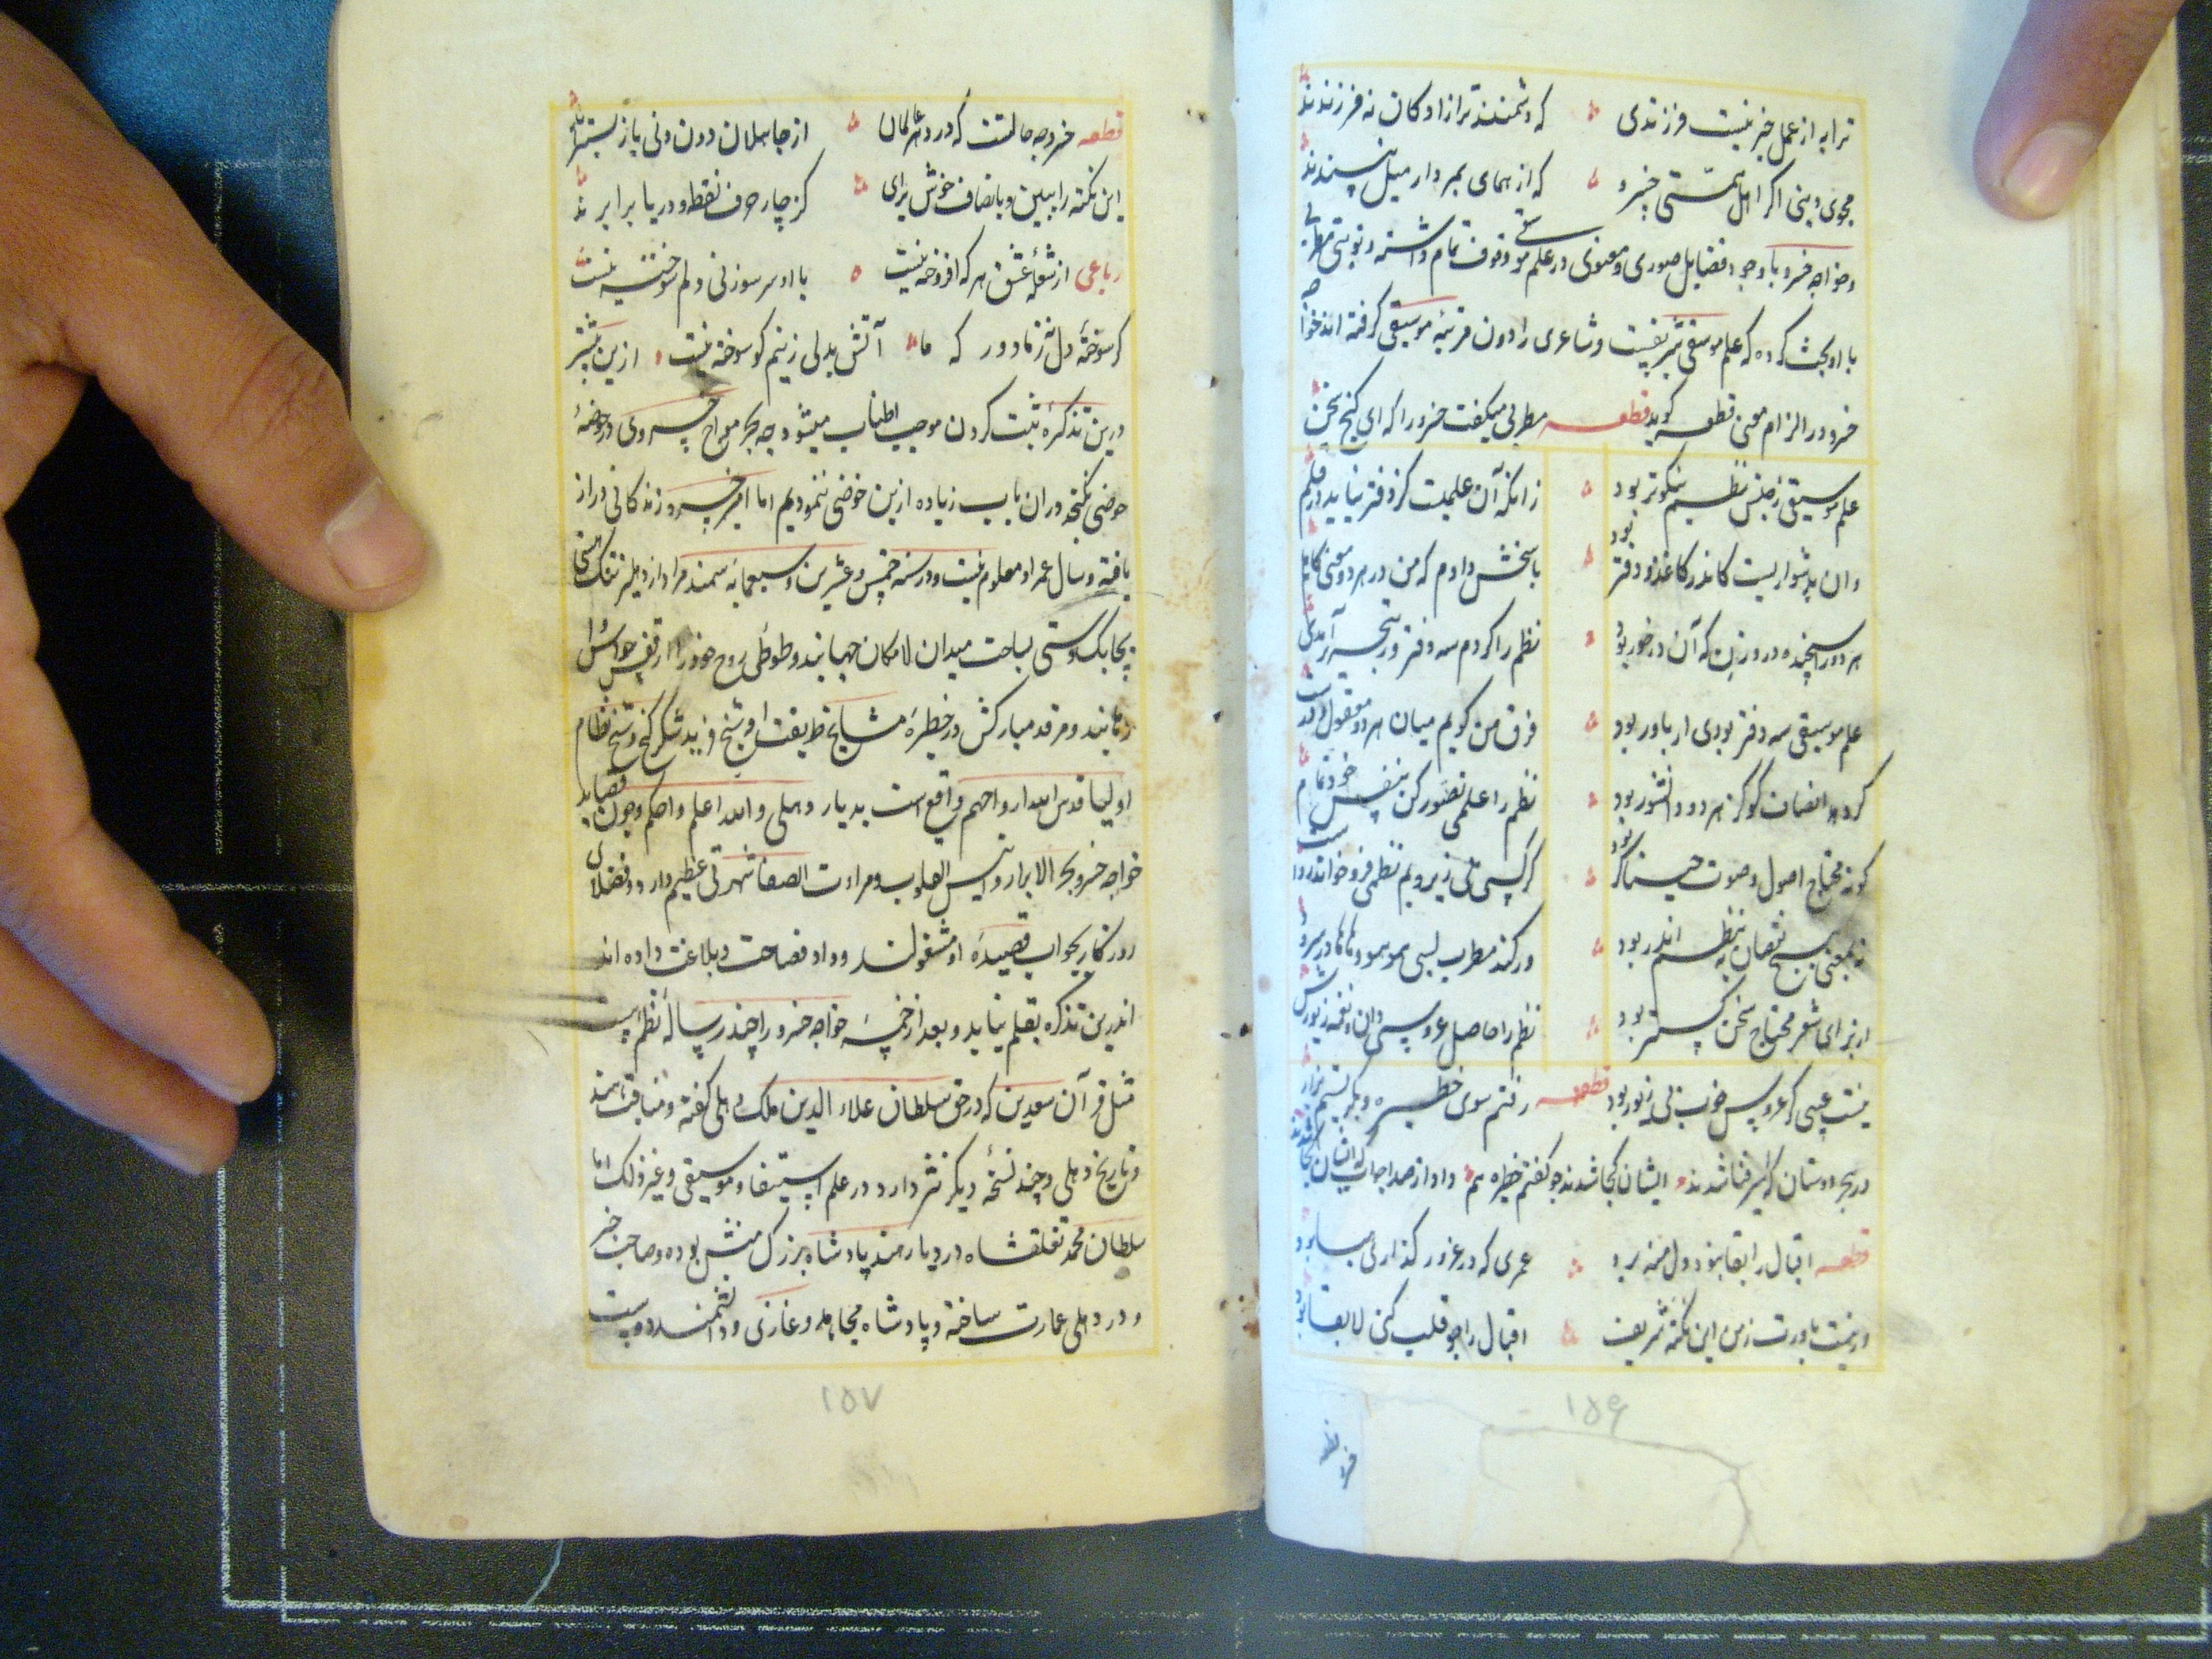 ترا به از عمل خیر نیست فرزندی که دشمنند ترا زادکان نه فرزندند
مجوی دینی اگر اهل همتی خسرو که از همای بمردار میل نپسندند
و خواجه خسرو با وجود فضایل صوری و معنوی در علم موسیقی وقوف تمام داشته و نوبتی مطربی
با او بحث کرده که علم موسیقی شریفست و شاعری را دون مرتبه موسیقی گرفته اند خواجه
خسرو در الزام معنی قطعه گوید قطعه مطربی میگفت خسرو را که ای گنج سخن
علم موسیقی ز جنس نظم نیکوتر بود زانکه آن علمیست کز دفتر نیاید در قلم
وان بدشواریست کاندر کاغذ و دفتر بود پاسخش دادم که من در هر دو معنی کاملم
هر دو را سنجیده در وزنی که آن درخور بود نظم را کردم سه دفتر ور بتحریر آمدی
علم موسیقی سه دفتر بودی ار باور بود فرق من گویم میان هر دو معقول و درست
کر دهد انصاف کو کز هر دو دانشور بود نظم را علمی تصور کن بنفس خود تمام
کو نه محتاج اصول و صوت خنیاگر بود گر کسی بی زیر و بم نظمی فرو خواند رواست
نه بمعنی هیچ نقصان نه بنظم اندر بود ور کند مطرب بسی هوهو و هاها در سرود
از برای شعر محتاج سخن گستر بود نظم را حاصل عروسی دان و نغمه زیورش
نیست عیبی گر عروس خوب بی زیور بود قطعه رفتم سوی خطیره و بگریستم بزار
در هجر دوستان که اسیر فنا شدند ایشان کجا شدند چو گفتم خطیره هم داد از صدا جواب که ایشان کجا شدند
قطعه اقبال را بقا نبود دل منه برو عمری که در غرور گذاری هبا بود
ور نیست باورت ز من این نکته شریف اقبال را چو قلب کنی لا بقا بود
۱۵۶
قطعه خسرو چه حالتست که در دهر عالمان از جاهلان دون دنی باز پسترند
این نکته را ببین و بانصاف خوش برای کز چار حرف نقطه و دریا برابرند
رباعی از شعله عشق هر که افروخته نیست با او سر سوزنی دلم سوخته نیست
گر سوخته دل نه ز ما دور که ما آتش بدلی زنیم کو سوخته نیست ازین بیشتر
درین تذکره ثبت کردن موجب اطناب میشود چه بحر مواج خسروی در حوصله
حوضی نگنجد در ان باب زیاده ازین خوضی ننمودیم اما امیر خسرو زندگانی دراز
یافته و سال عمر او معلوم نیست و در سنه خمس و عشرین و سبعمایه سمند مراد از دهلیز تنگ هستی
بچابک دستی بساحت میدان لامکان جهانید و طوطی روح خود را از قفس حواس
رهانید و مرقد مبارکش در خطیره مشایخ طریقتش او شیخ فرید شکر گنج و شیخ نظام
اولیا قدس الله ارواحهم واقع است بدیار دهلی والله اعلم و احکم و چون قصاید
خواجه خسرو بحر الابرار و انیس القلوب و مرات الصفا شهرتی عظیم دارد و فضلای
روزگار بجواب قصیده او مشغولند و داد فصاحت و بلاغت داده اند
اندرین تذکره بقلم نیاید و بعد از خمسه خواجه خسرو را چند رساله نظم است
مثل قرآن سعدین که در حق سلطان علاء الدین ملک دهلی گفته و مناقب هند
و تاریخ دهلی و چند نسخه دیگر نثر دارد در علم استیفا و موسیقی و غیر ذلک اما
سلطان محمد تغلقشاه در دیار هند پادشاه بزرگ منش بوده و صاحب خیر
و در دهلی عمارت ساخته و پادشاه مجاهد و غازی و دانشمند دوست
۱۵۷